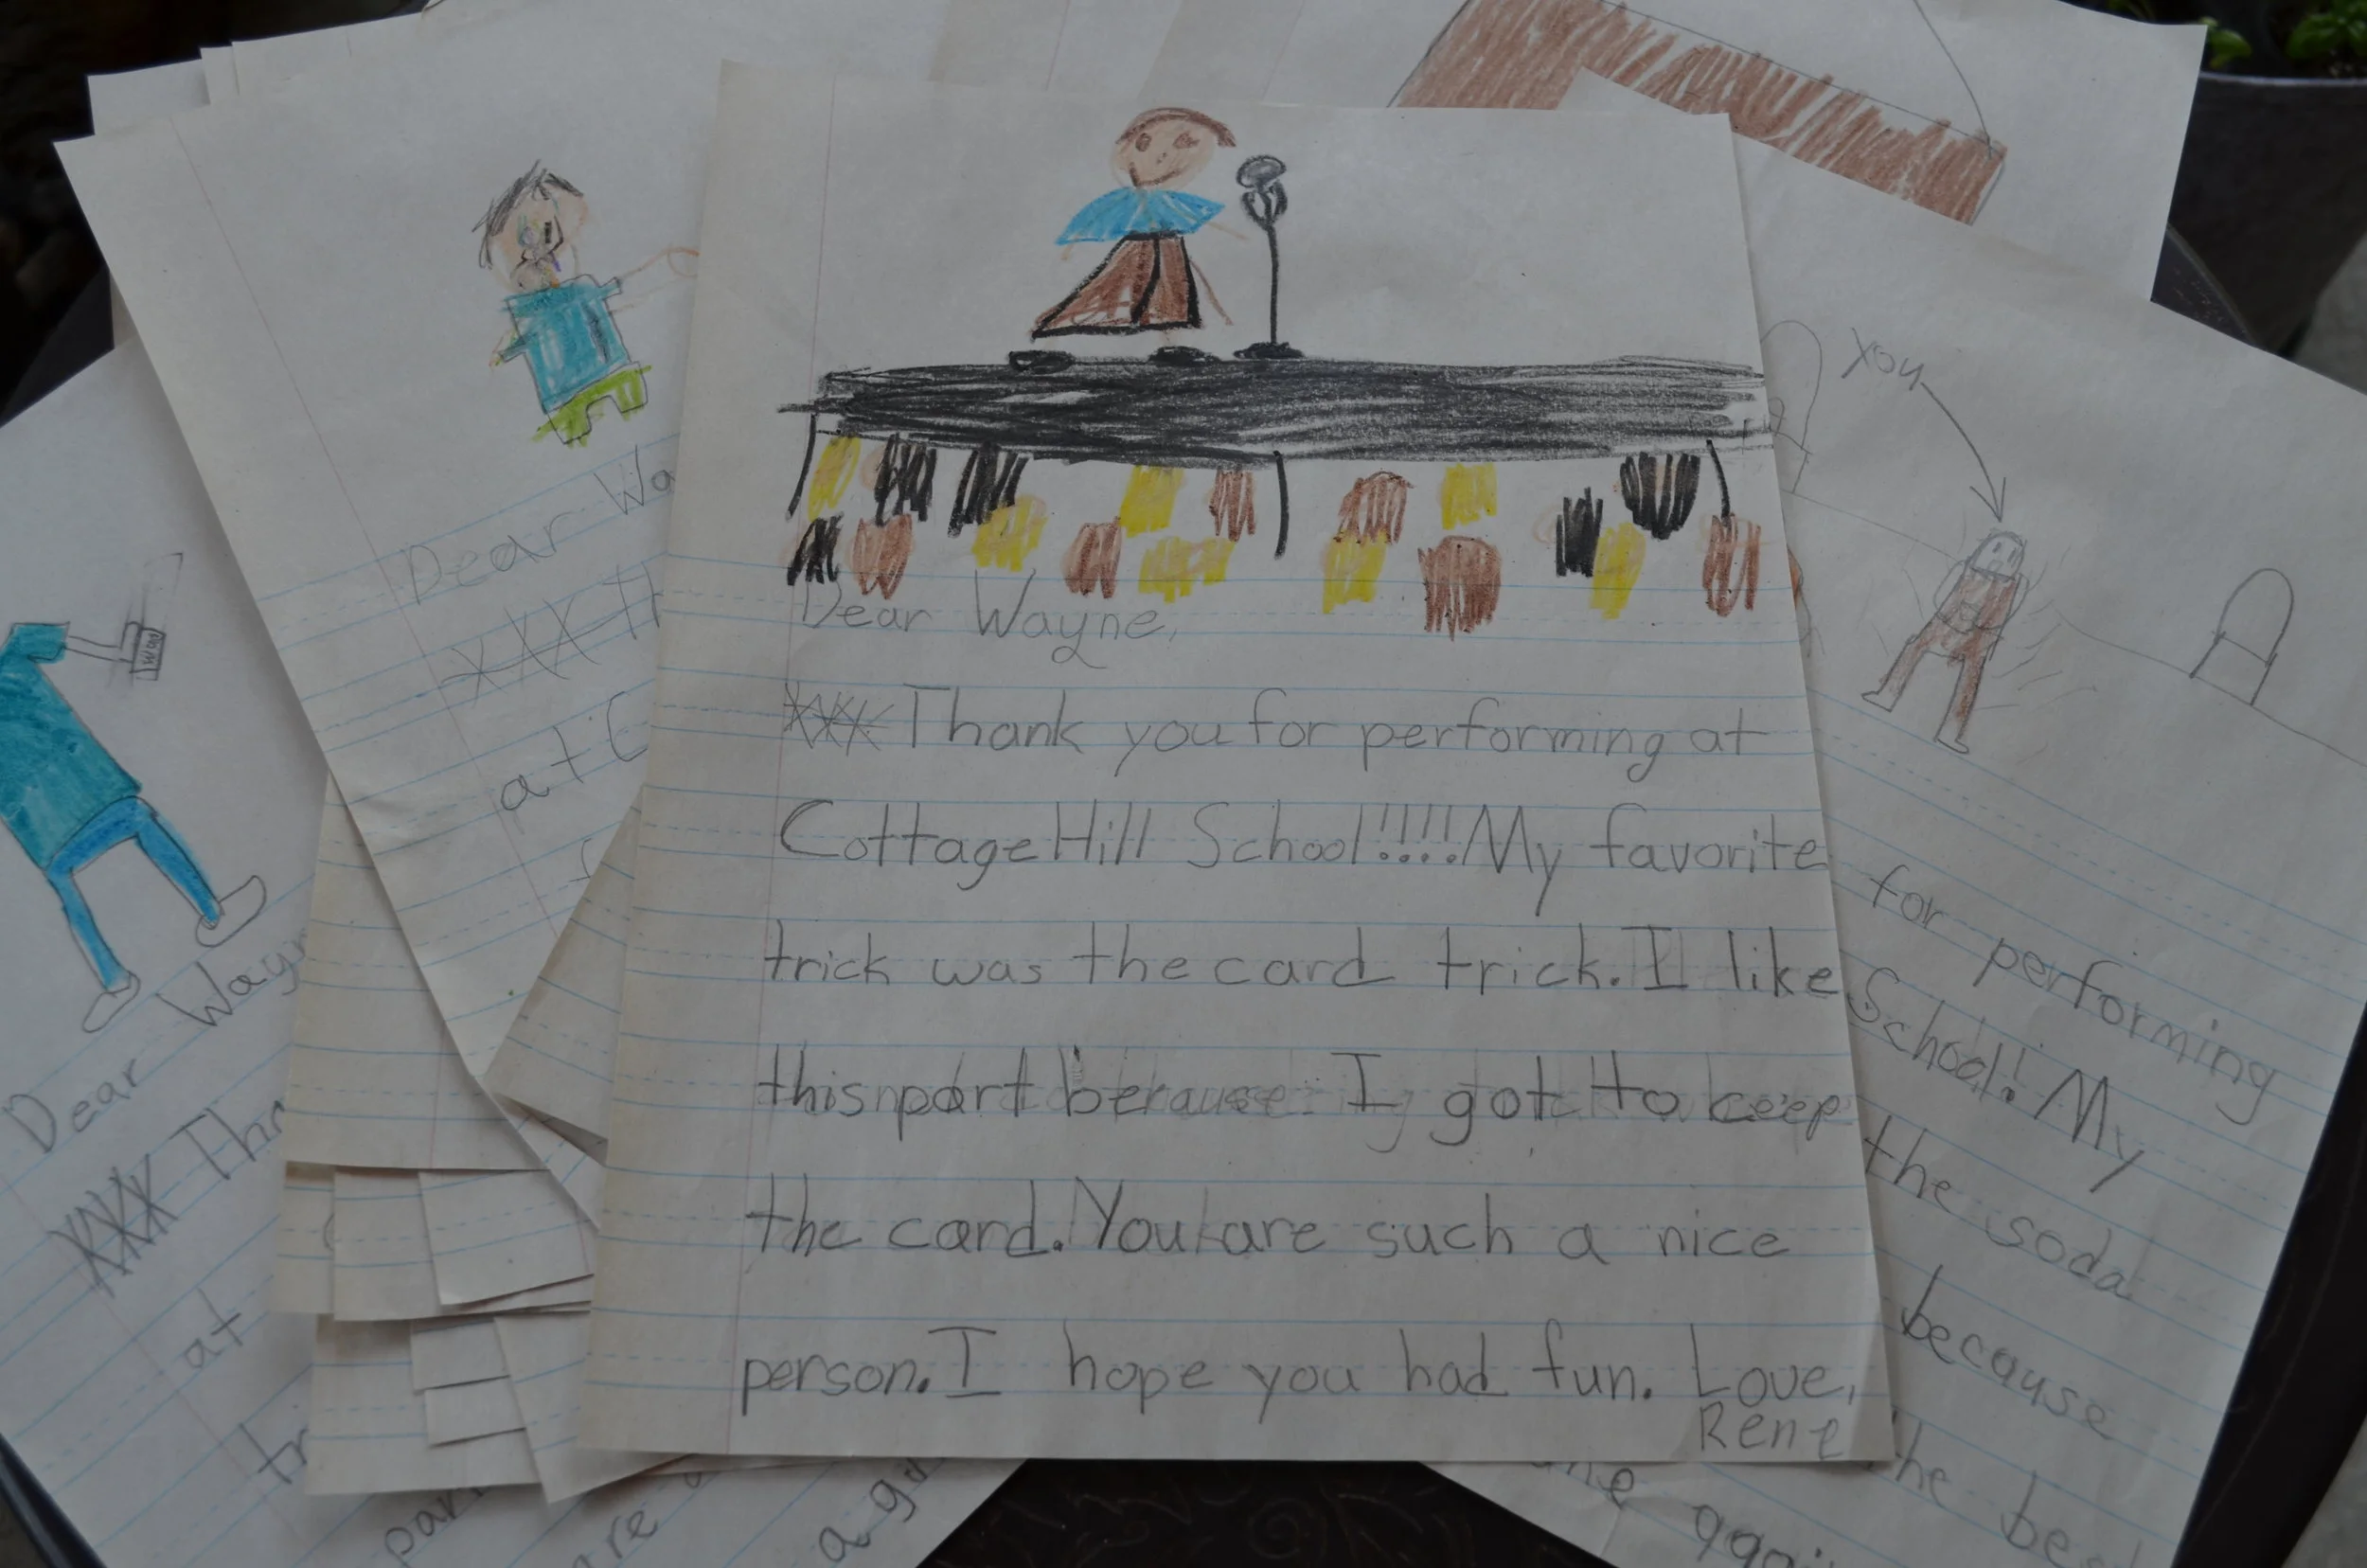 Dear Wayne,
XXX Thank you for performing at
Cottage Hill School!!!! My favorite
trick was the card trick. I like
this part because I got to keep
the card. You are such a nice
person. I hope you had fun. Love,
Rene
Dear Wa
XXX Th
at C
Dear Wayn
XXX Tha
at
tr
par
are
a go
you
for performing
School! My
the soda
because
the bes
agai